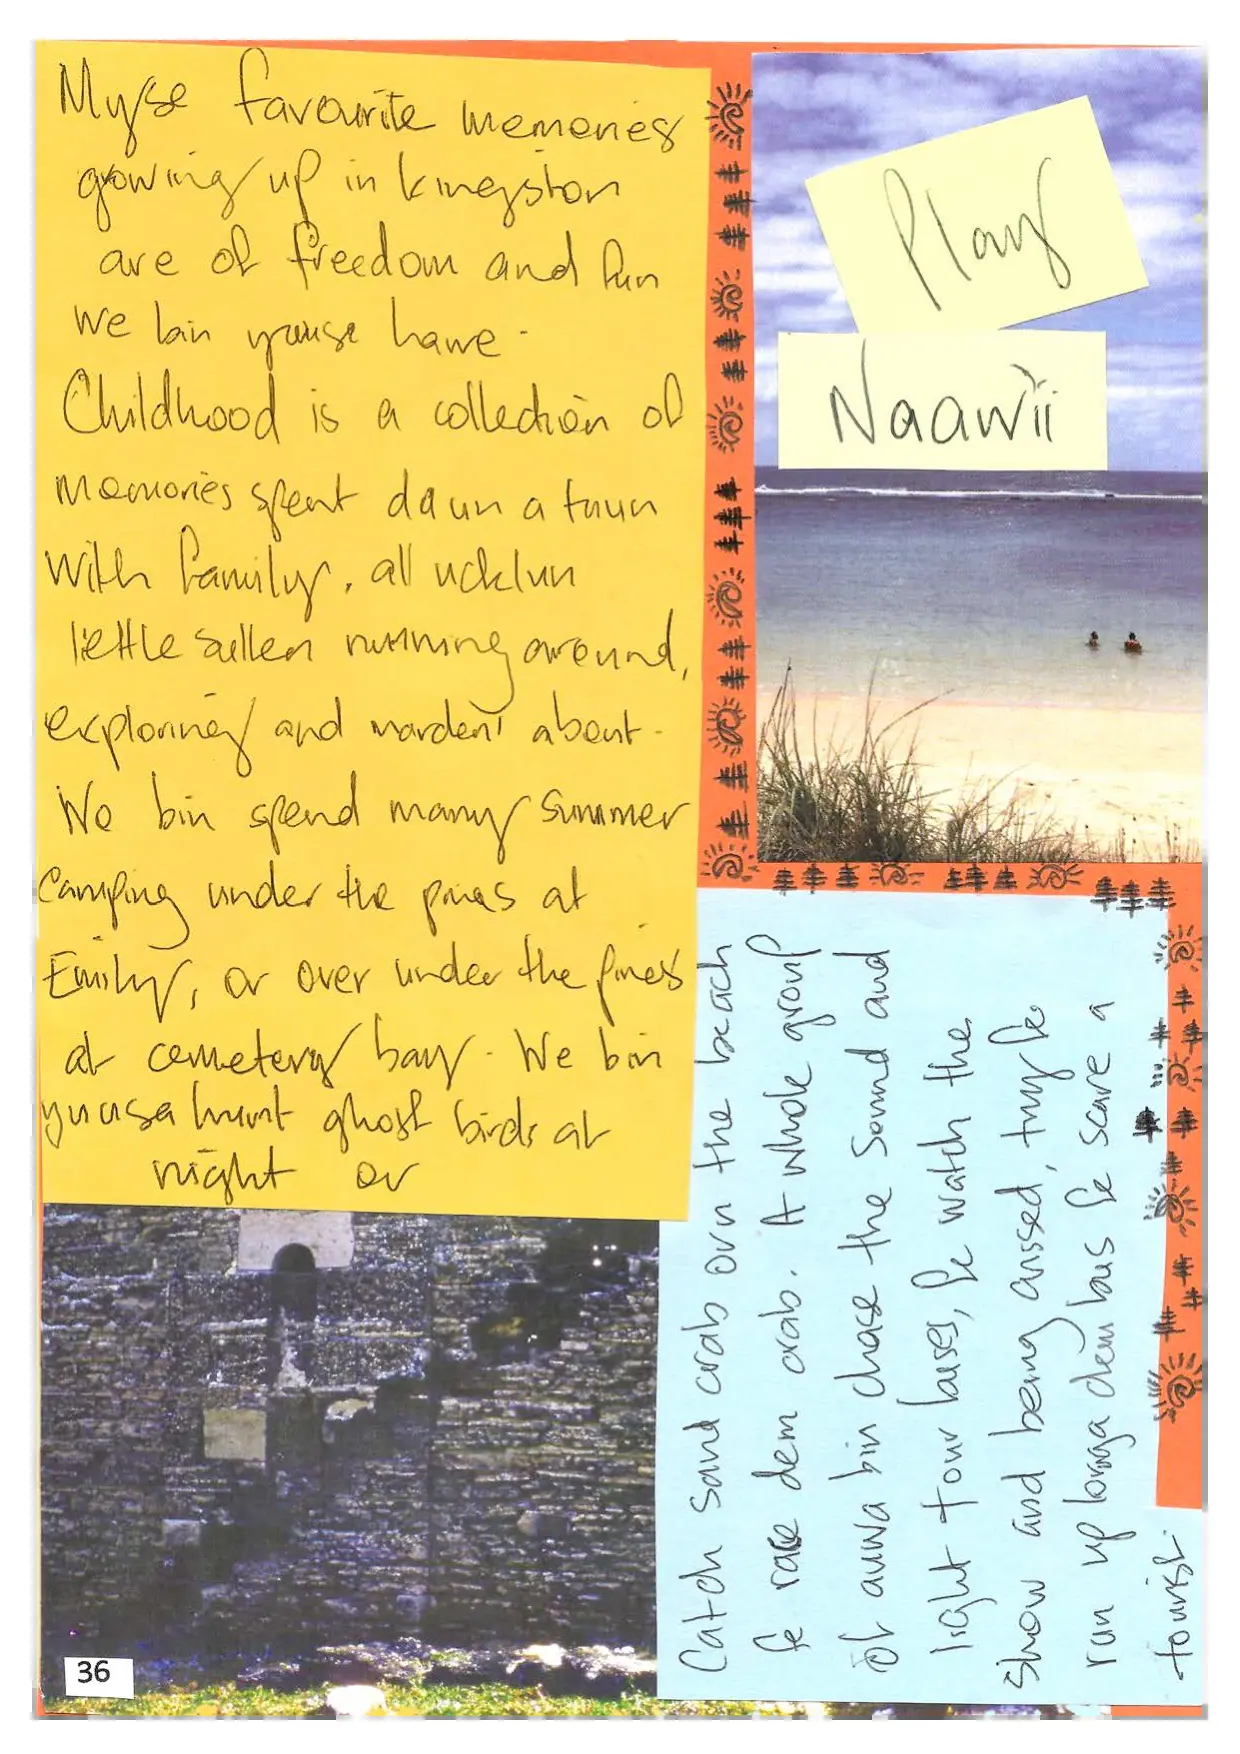 Myse favourite memories
growing up in kingston
are of freedom and fun
we bin yuusa hawe.
Childhood is a collection of
memories spent daun a taun
with family, all ucklun
liettle sullen running around,
exploring and narden about.
We bin spend many summer
camping under the pines at
Emily, or over under the pines
at cemetery bay. We bin
yuusa hunt ghost birds at
night or
Play
Naawii
Catch sand crab orn the beach
fe race dem crab. A whole group
of auwa bin chase the sound and
light tour buses, fe watch the
show and being arsed, try fe
run up longa dem bus fe scare a
tourist.
36